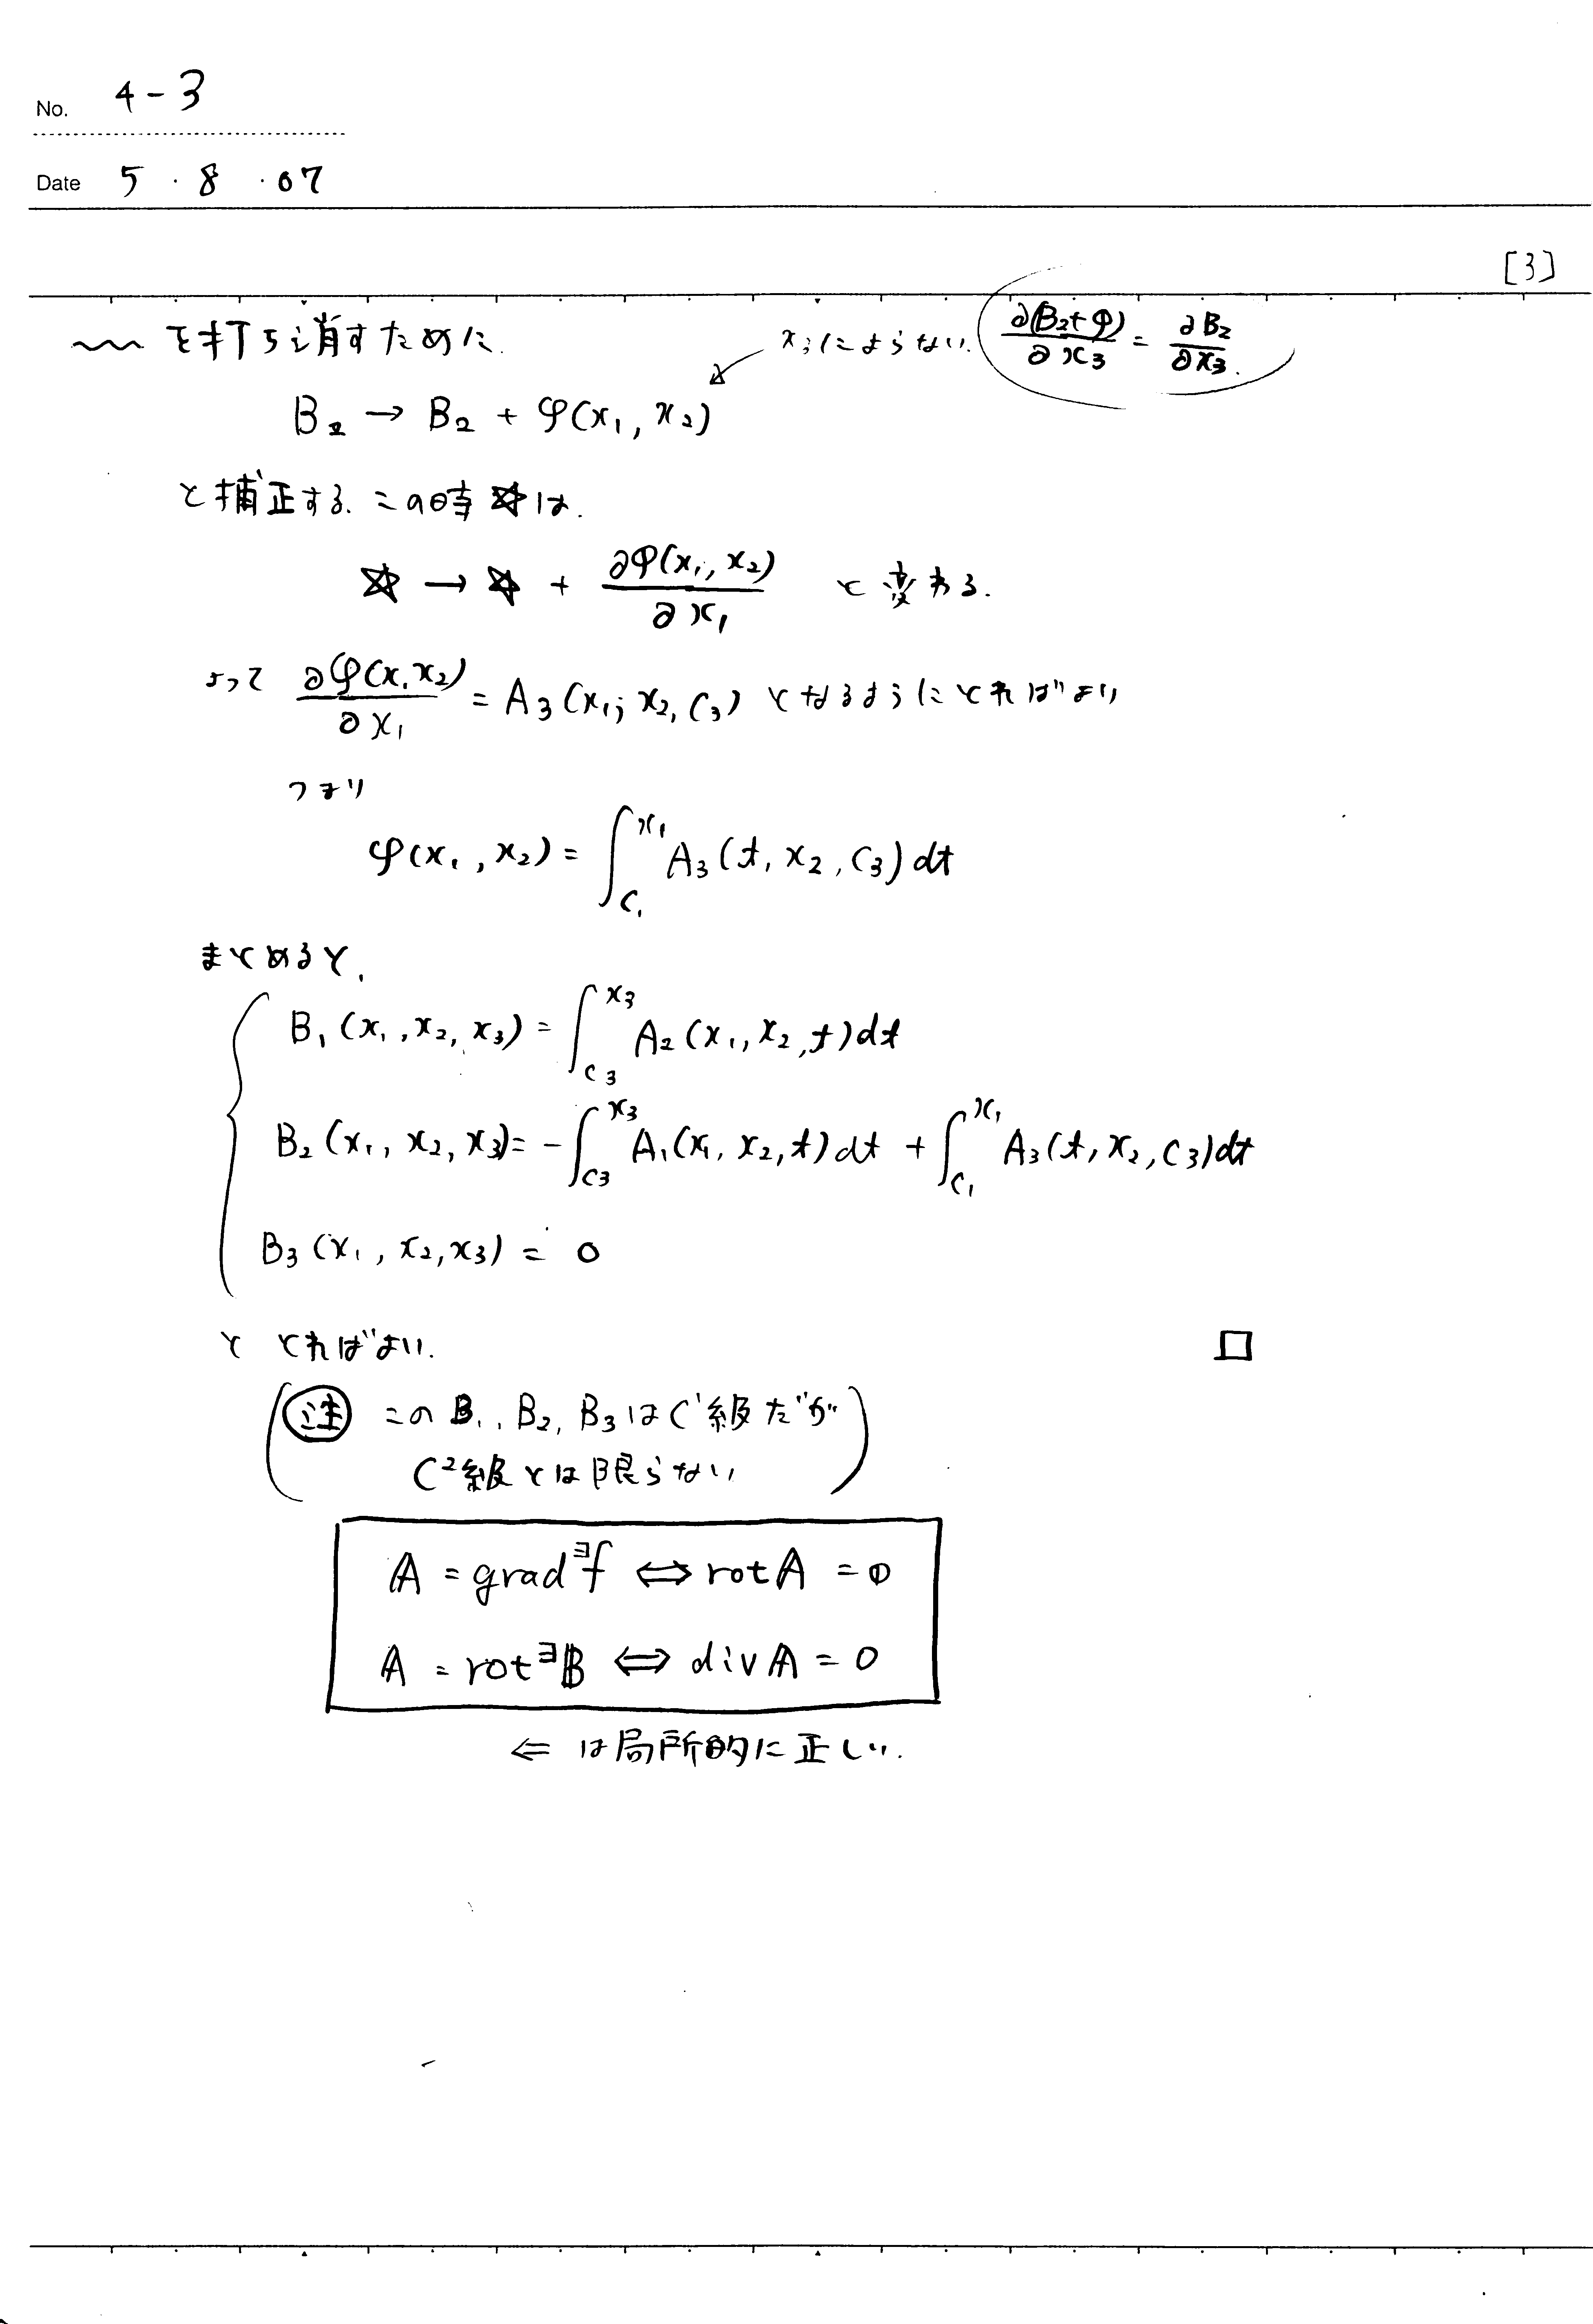 No. 4-3
Date 5 · 8 · 07
[3]
〜〜 を打ち消すために.
x₃によらない. ∂(B₂+φ)/∂x₃ = ∂B₂/∂x₃.
B₂ → B₂ + φ(x₁, x₂)
と補正する. この時 ☆は.
☆ → ☆ + ∂φ(x₁, x₂)/∂x₁ と変わる.
よって ∂φ(x₁x₂)/∂x₁ = A₃(x₁, x₂, c₃) となるようにとればよい
つまり
φ(x₁, x₂) = ∫_{c₁}^{x₁} A₃(t, x₂, c₃)dt
まとめると,
B₁(x₁, x₂, x₃) = ∫_{c₃}^{x₃} A₂(x₁, x₂, t)dt
B₂(x₁, x₂, x₃) = -∫_{c₃}^{x₃} A₁(x₁, x₂, t)dt + ∫_{c₁}^{x₁} A₃(t, x₂, c₃)dt
B₃(x₁, x₂, x₃) = 0
と とればよい. □
(注 この B₁, B₂, B₃はC¹級だが
C²級とは限らない)
𝔸 = grad ∃f ⇔ rot𝔸 = 𝟘
𝔸 = rot ∃𝔹 ⇔ div𝔸 = 0
⇐ は局所的に正しい.